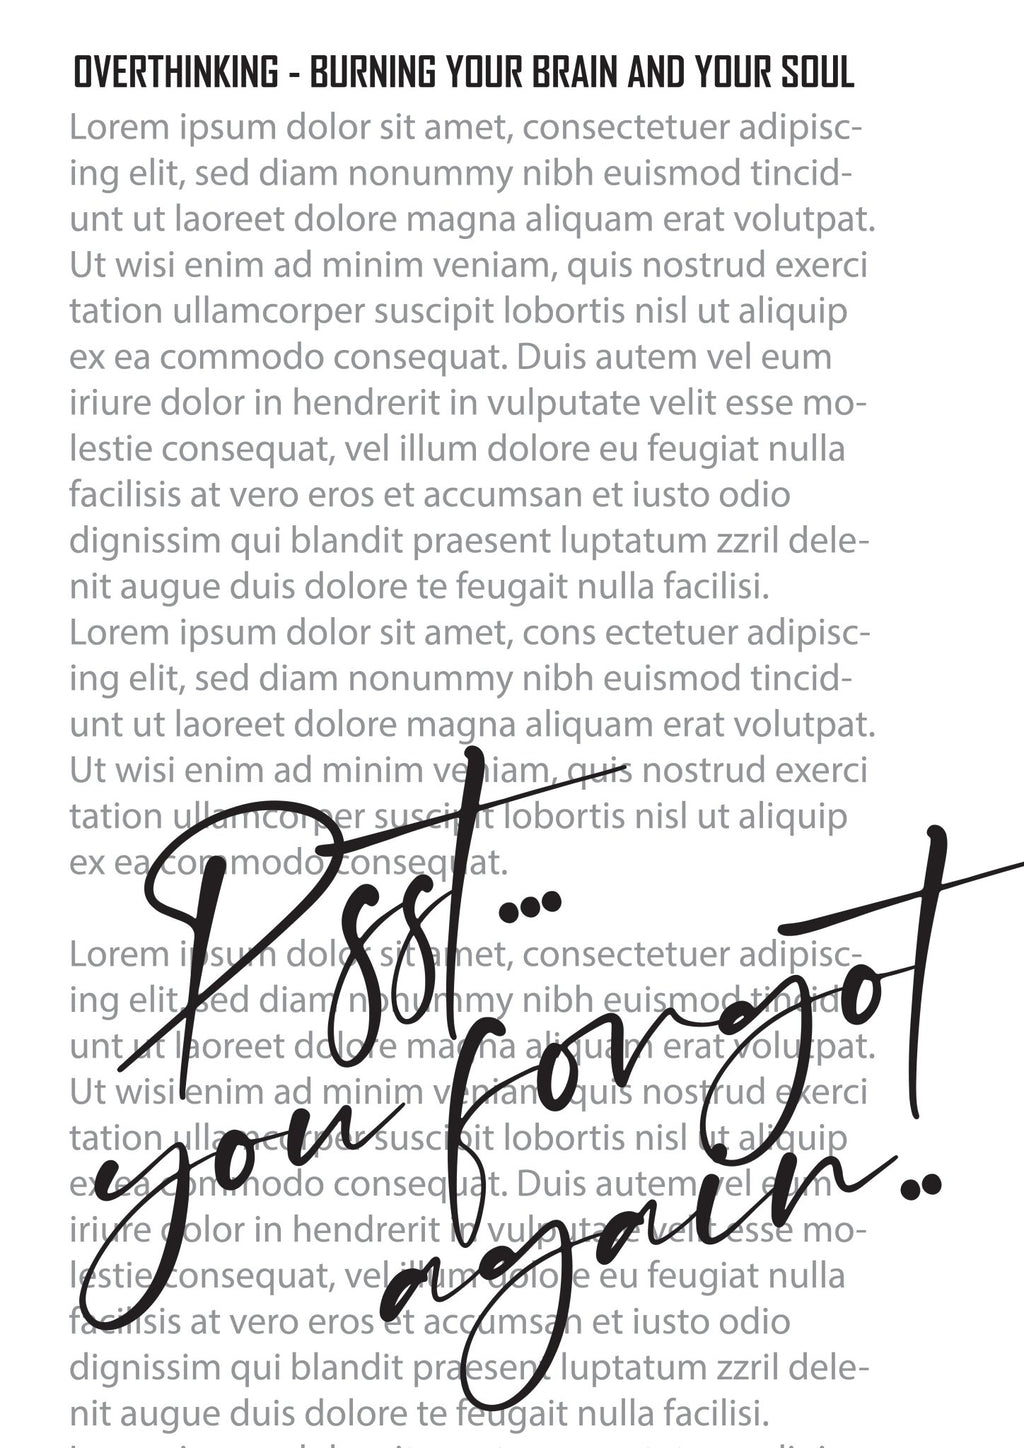 OVERTHINKING - BURNING YOUR BRAIN AND YOUR SOUL
Lorem ipsum dolor sit amet, consectetuer adipisc-
ing elit, sed diam nonummy nibh euismod tincid-
unt ut laoreet dolore magna aliquam erat volutpat.
Ut wisi enim ad minim veniam, quis nostrud exerci
tation ullamcorper suscipit lobortis nisl ut aliquip
ex ea commodo consequat. Duis autem vel eum
iriure dolor in hendrerit in vulputate velit esse mo-
lestie consequat, vel illum dolore eu feugiat nulla
facilisis at vero eros et accumsan et iusto odio
dignissim qui blandit praesent luptatum zzril dele-
nit augue duis dolore te feugait nulla facilisi.
Lorem ipsum dolor sit amet, cons ectetuer adipisc-
ing elit, sed diam nonummy nibh euismod tincid-
unt ut laoreet dolore magna aliquam erat volutpat.
Ut wisi enim ad minim veniam, quis nostrud exerci
tation ullamcorper suscipit lobortis nisl ut aliquip
ex ea commodo consequat.
Psst...
you forgot
again..
Lorem ipsum dolor sit amet, consectetuer adipisc-
ing elit, sed diam nonummy nibh euismod tincid-
unt ut laoreet dolore magna aliquam erat volutpat.
Ut wisi enim ad minim veniam, quis nostrud exerci
tation ullamcorper suscipit lobortis nisl ut aliquip
ex ea commodo consequat. Duis autem vel eum
iriure dolor in hendrerit in vulputate velit esse mo-
lestie consequat, vel illum dolore eu feugiat nulla
facilisis at vero eros et accumsan et iusto odio
dignissim qui blandit praesent luptatum zzril dele-
nit augue duis dolore te feugait nulla facilisi.